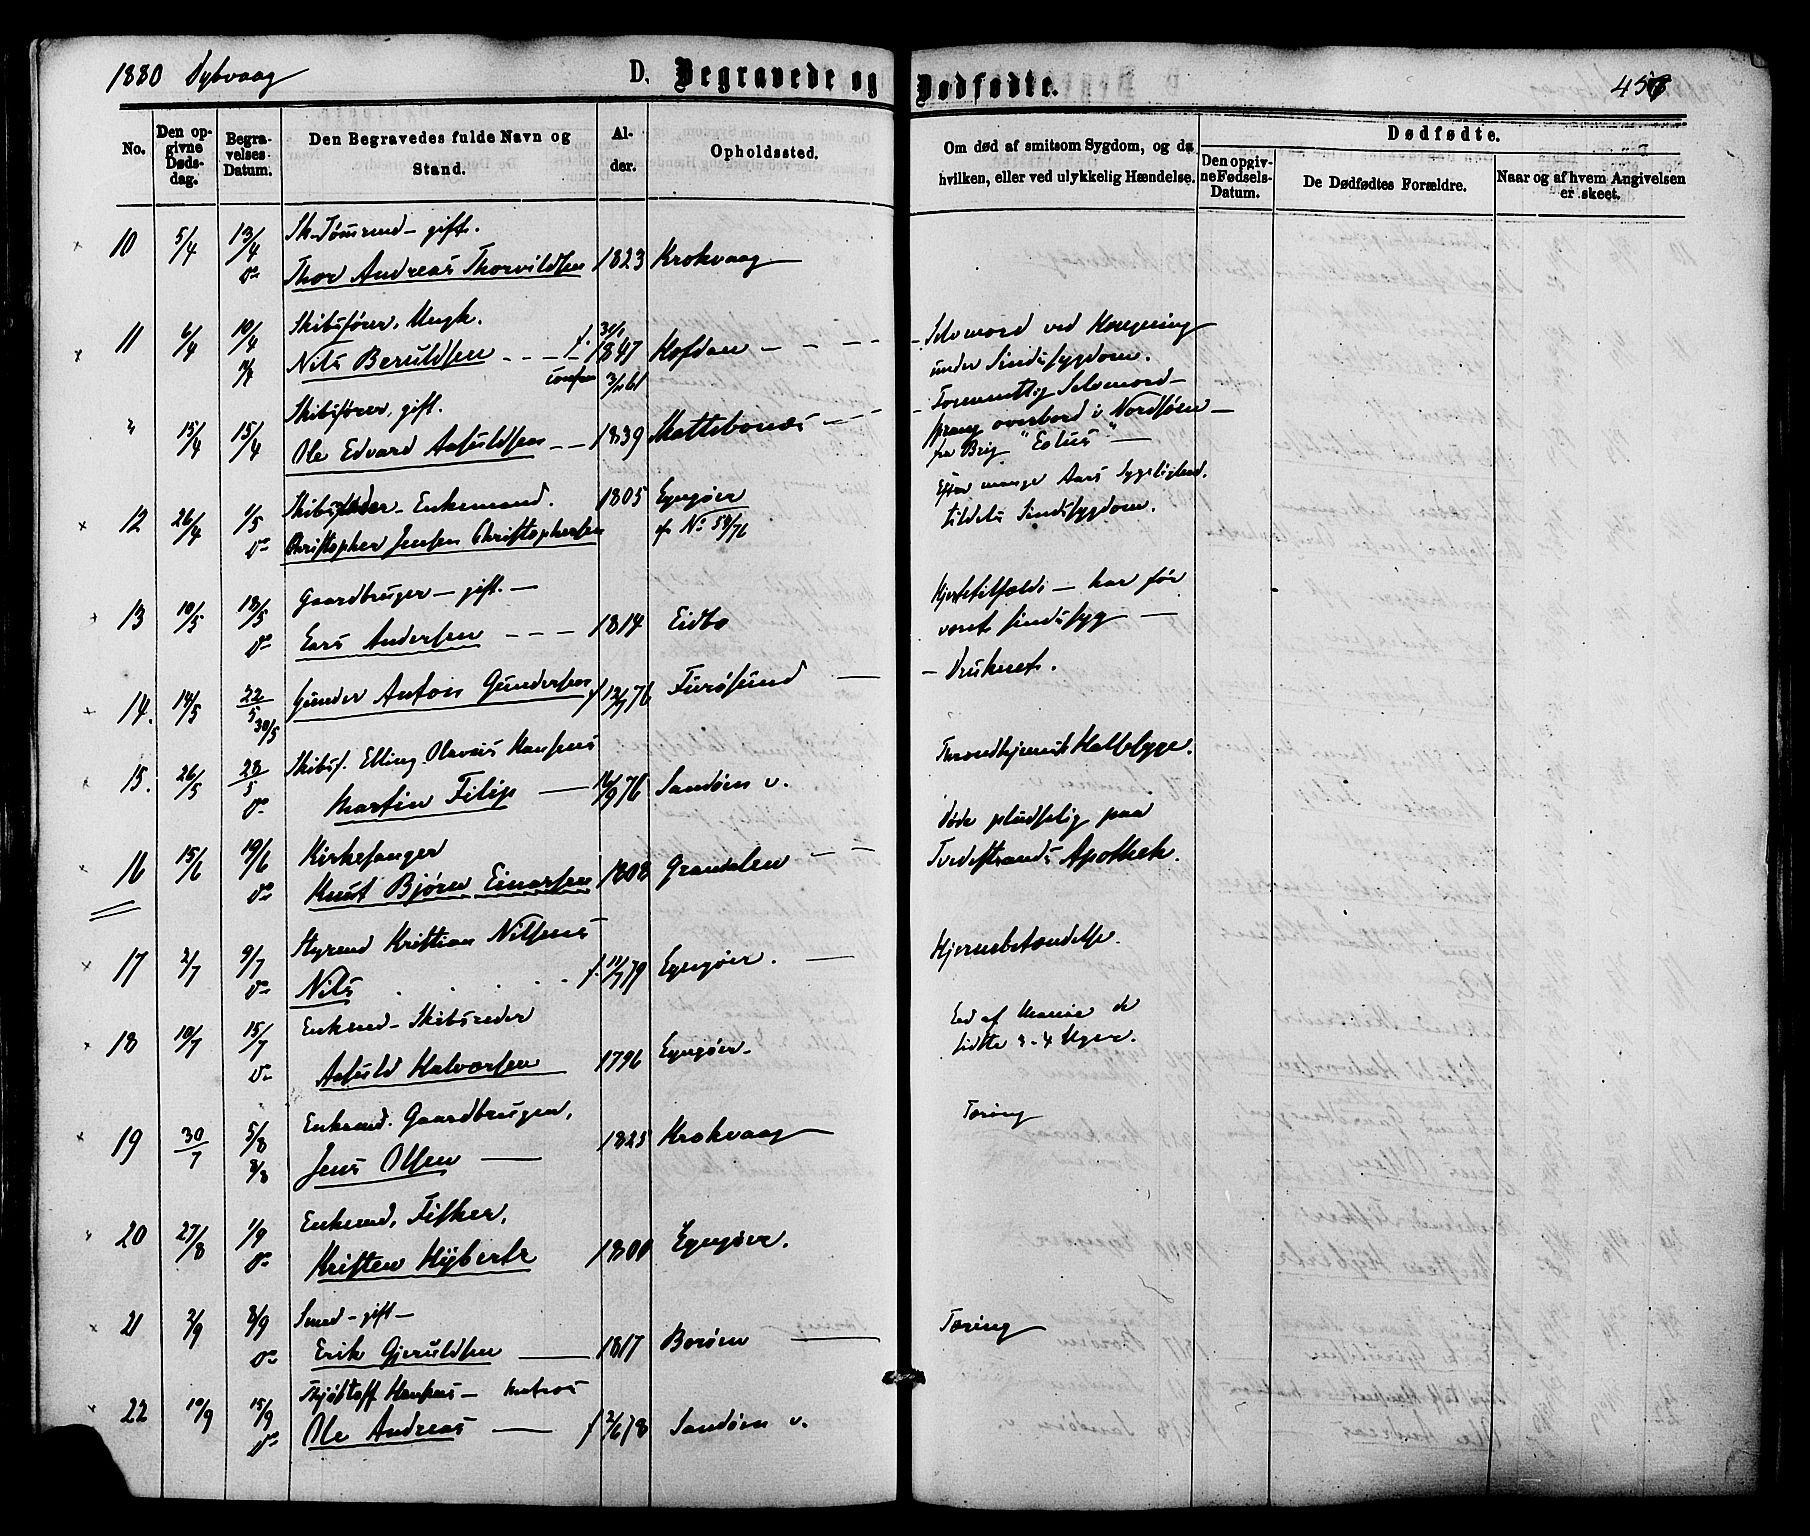 1880 Dybvaag D. Begravede og Dødfødte. 457
No. Den opgivne Dødsdag. Begravelses Datum. Den Begravedes fulde Navn og Stand. Alder. Opholdssted. Om død af smitsom Sygdom, og da hvilken, eller ved ulykkelig Hændelse. Dødfødte.
Den opgivne Fødsels-Datum. De Dødfødtes Forældre. Naar og af hvem Angivelsen er skeet.
10 5/4 13/4 gift.
do Thor Andreas Thorvildsen 1823 Krokvaag
11 6/4 10/4 Skibsfører, Ungk. f. 31/1 Selvmord ved Hængning
Nils Beruldsen 1847 Hofdan under Sindssygdom.
" 15/4 15/4 Skibsfører, gift. Formentlig Selvmord
Ole Edvard Aasuldsen 1839 Mattebonæs sprang overbord i Nordsøen
fra Brig "Eolus"
12 26/4 1/5 Enkemand. 1805 Eyngøer Efter mange Aars Sygelighed,
do Christopher Jensen Christophersen cfr No 58/76 tildels Sindssygdom.
13 10/5 18/5 Gaardbruger gift. Hjertetilfælde har før
do Lars Andersen 1814 Eidbo været sindssyg
14. 14/5 22/5 Gunder Anton Gundersen f 12/7 76 Furøsund Druknet.
30/5
15. 26/5 28/5 Skibsf. Elling Olavus Hansens Throndhjemsk Halssyge.
do Martin Filip 16/9 76 Sandøen v.
16 15/6 19/6 Kirkesanger Døde pludselig paa
do Knut Bjørn Einarsen 1808 Grandalen Tvedestrands Apothek.
17 2/7 9/7 Styrmd Kristian Nilsens Hjernebetændelse.
do Nils f. 11/7 79 Eyngøer.
18 10/7 15/7 Enkemd Skibsreder
do Aasuld Halvorsen 1796 Eyngøer. lidte 3-4 Uger.
19 30/7 5/8 Enkemd. Gaardbruger. Tæring
8/8 Jens Olsen 1825 Krokvaag
20 27/8 1/9 Enkemd, Fisker,
do Kristen Hybertz 1800 Eyngøer.
21 2/9 8/9 Smed gift Tæring
do Erik Gjeruldsen 1817 Borøen
22 10/9 15/9 Hansens Matros
do Ole Andreas f 2/6 78 Sandøen v.